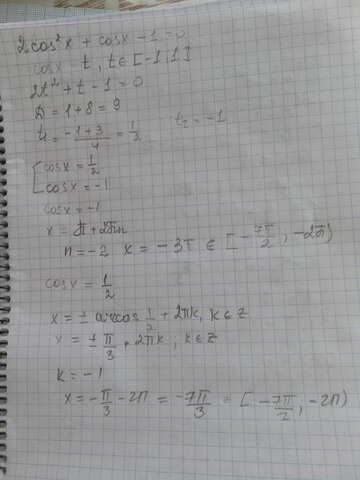 2cos²x + cosx - 1 = 0
cosx = t, t ∈ [-1; 1]
2t² + t - 1 = 0
D = 1 + 8 = 9
t₁ = (-1+3)/4 = 1/2, t₂ = -1
[cosx = 1/2
cosx = -1
cosx = -1
x = π + 2πn
n = -2 x = -3π ∈ [-7π/2, -2π)
cosx = 1/2
x = ± arccos 1/2 + 2πk, k ∈ z
x = ± π/3 + 2πk, k ∈ z
k = -1
x = -π/3 - 2π = -7π/3 ∈ [-7π/2, -2π)